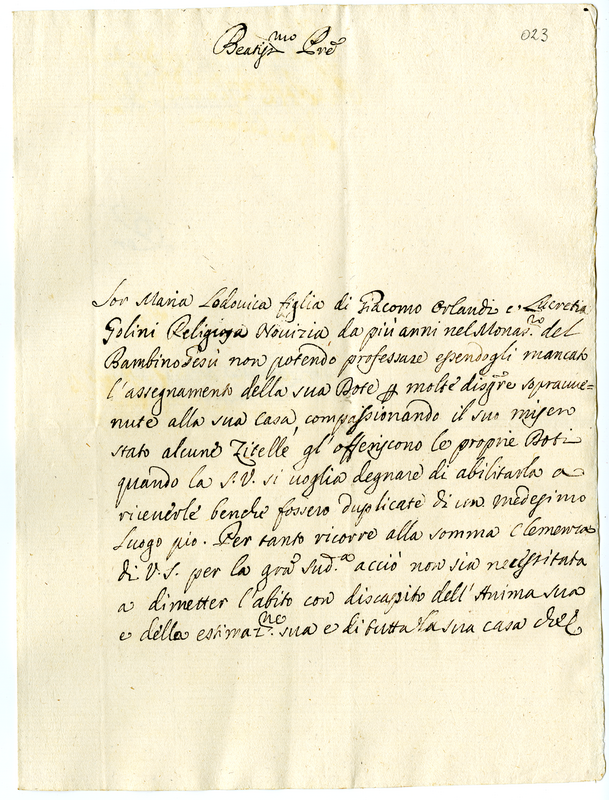 023
Beatiss.mo Pre
Sor Maria Lodovica figlia di Giacomo Orlandi e Lucretia
Golini Religiosa Novizia da più anni nel Monas.ro del
Bambino Gesù non potendo professare essendogli mancato
l'assegnamento della sua Dote p molte disgre sopraue=
nute alla sua casa, compassionando il suo miser
stato alcune Zitelle gl'offeriscono le proprie Doti
quando la S.V. si uoglia degnare di abilitarla a
riceverle benche fossero duplicate di un medesimo
Luogo pio. Per tanto ricorre alla somma Clemenza
di V.S. per la gra sud.a acciò non sia necessitata
a dimetter l'abito con discapito dell'Anima sua
e della estimaz.ne sua e di tutta la sua casa che